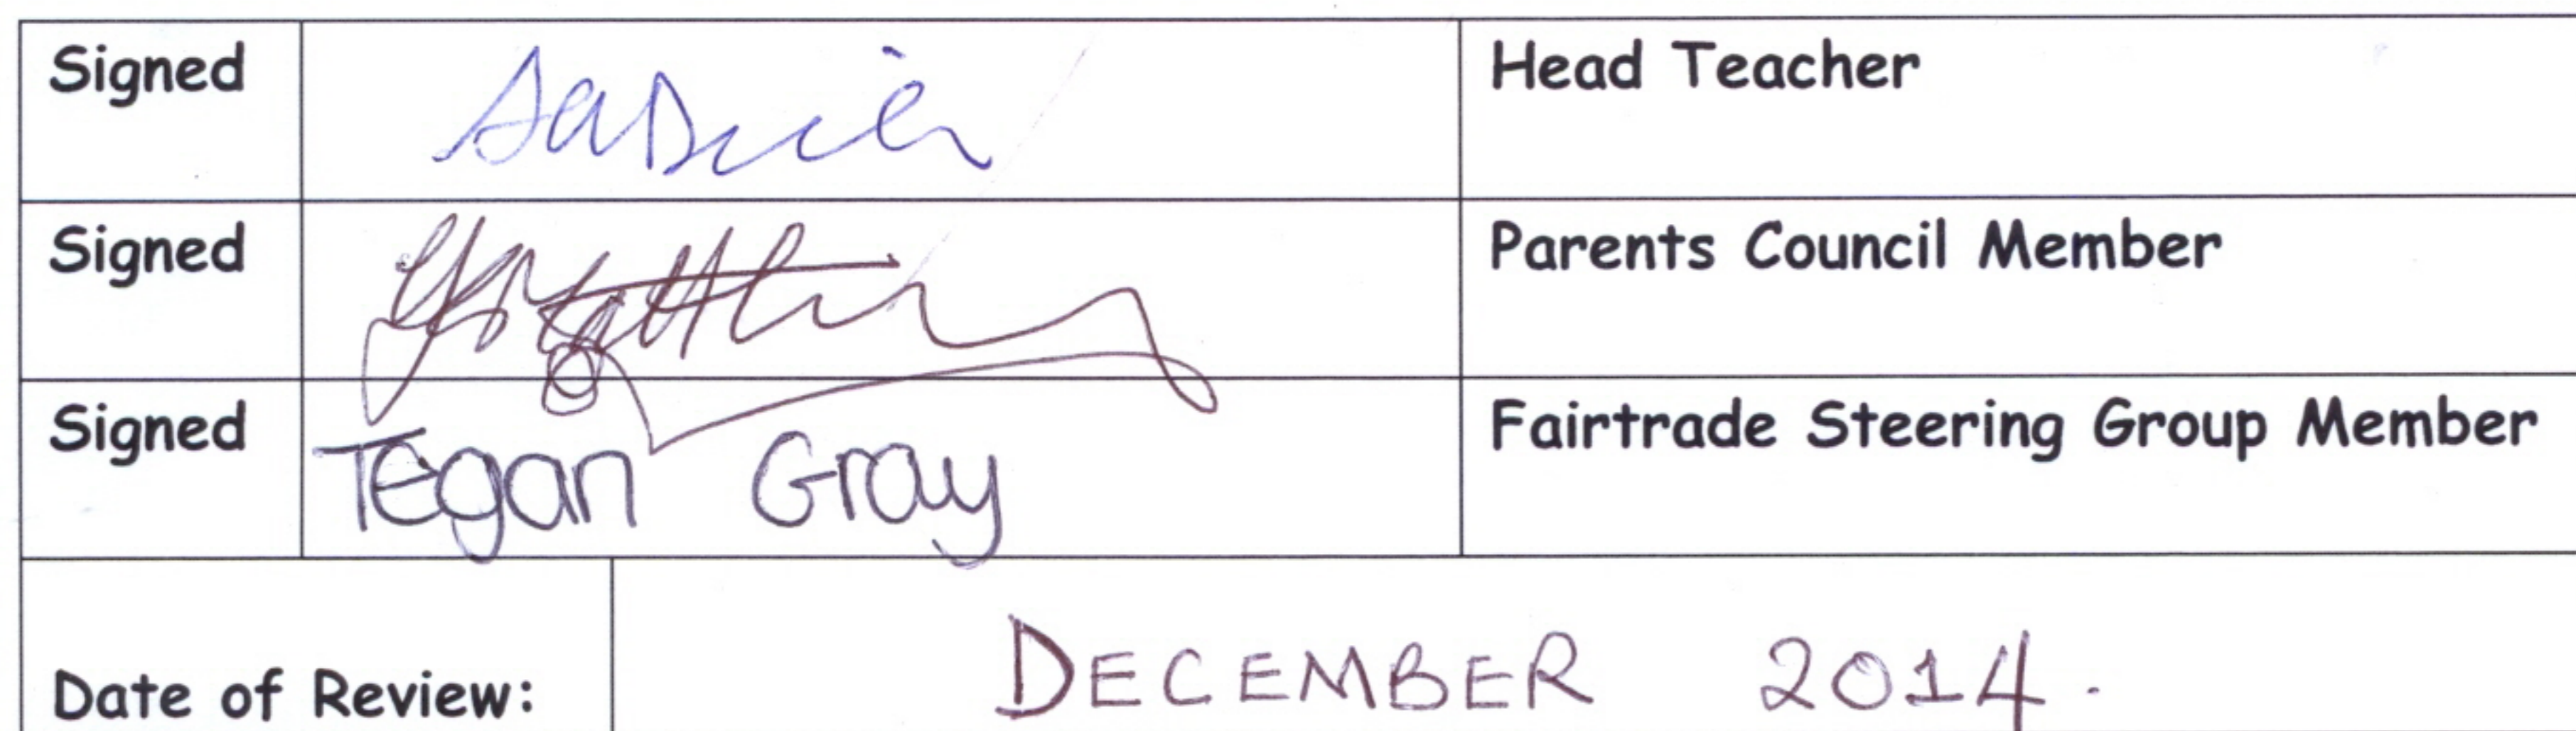 Signed Head Teacher
Signed Parents Council Member
Signed Tegan Gray Fairtrade Steering Group Member
Date of Review: DECEMBER 2014.